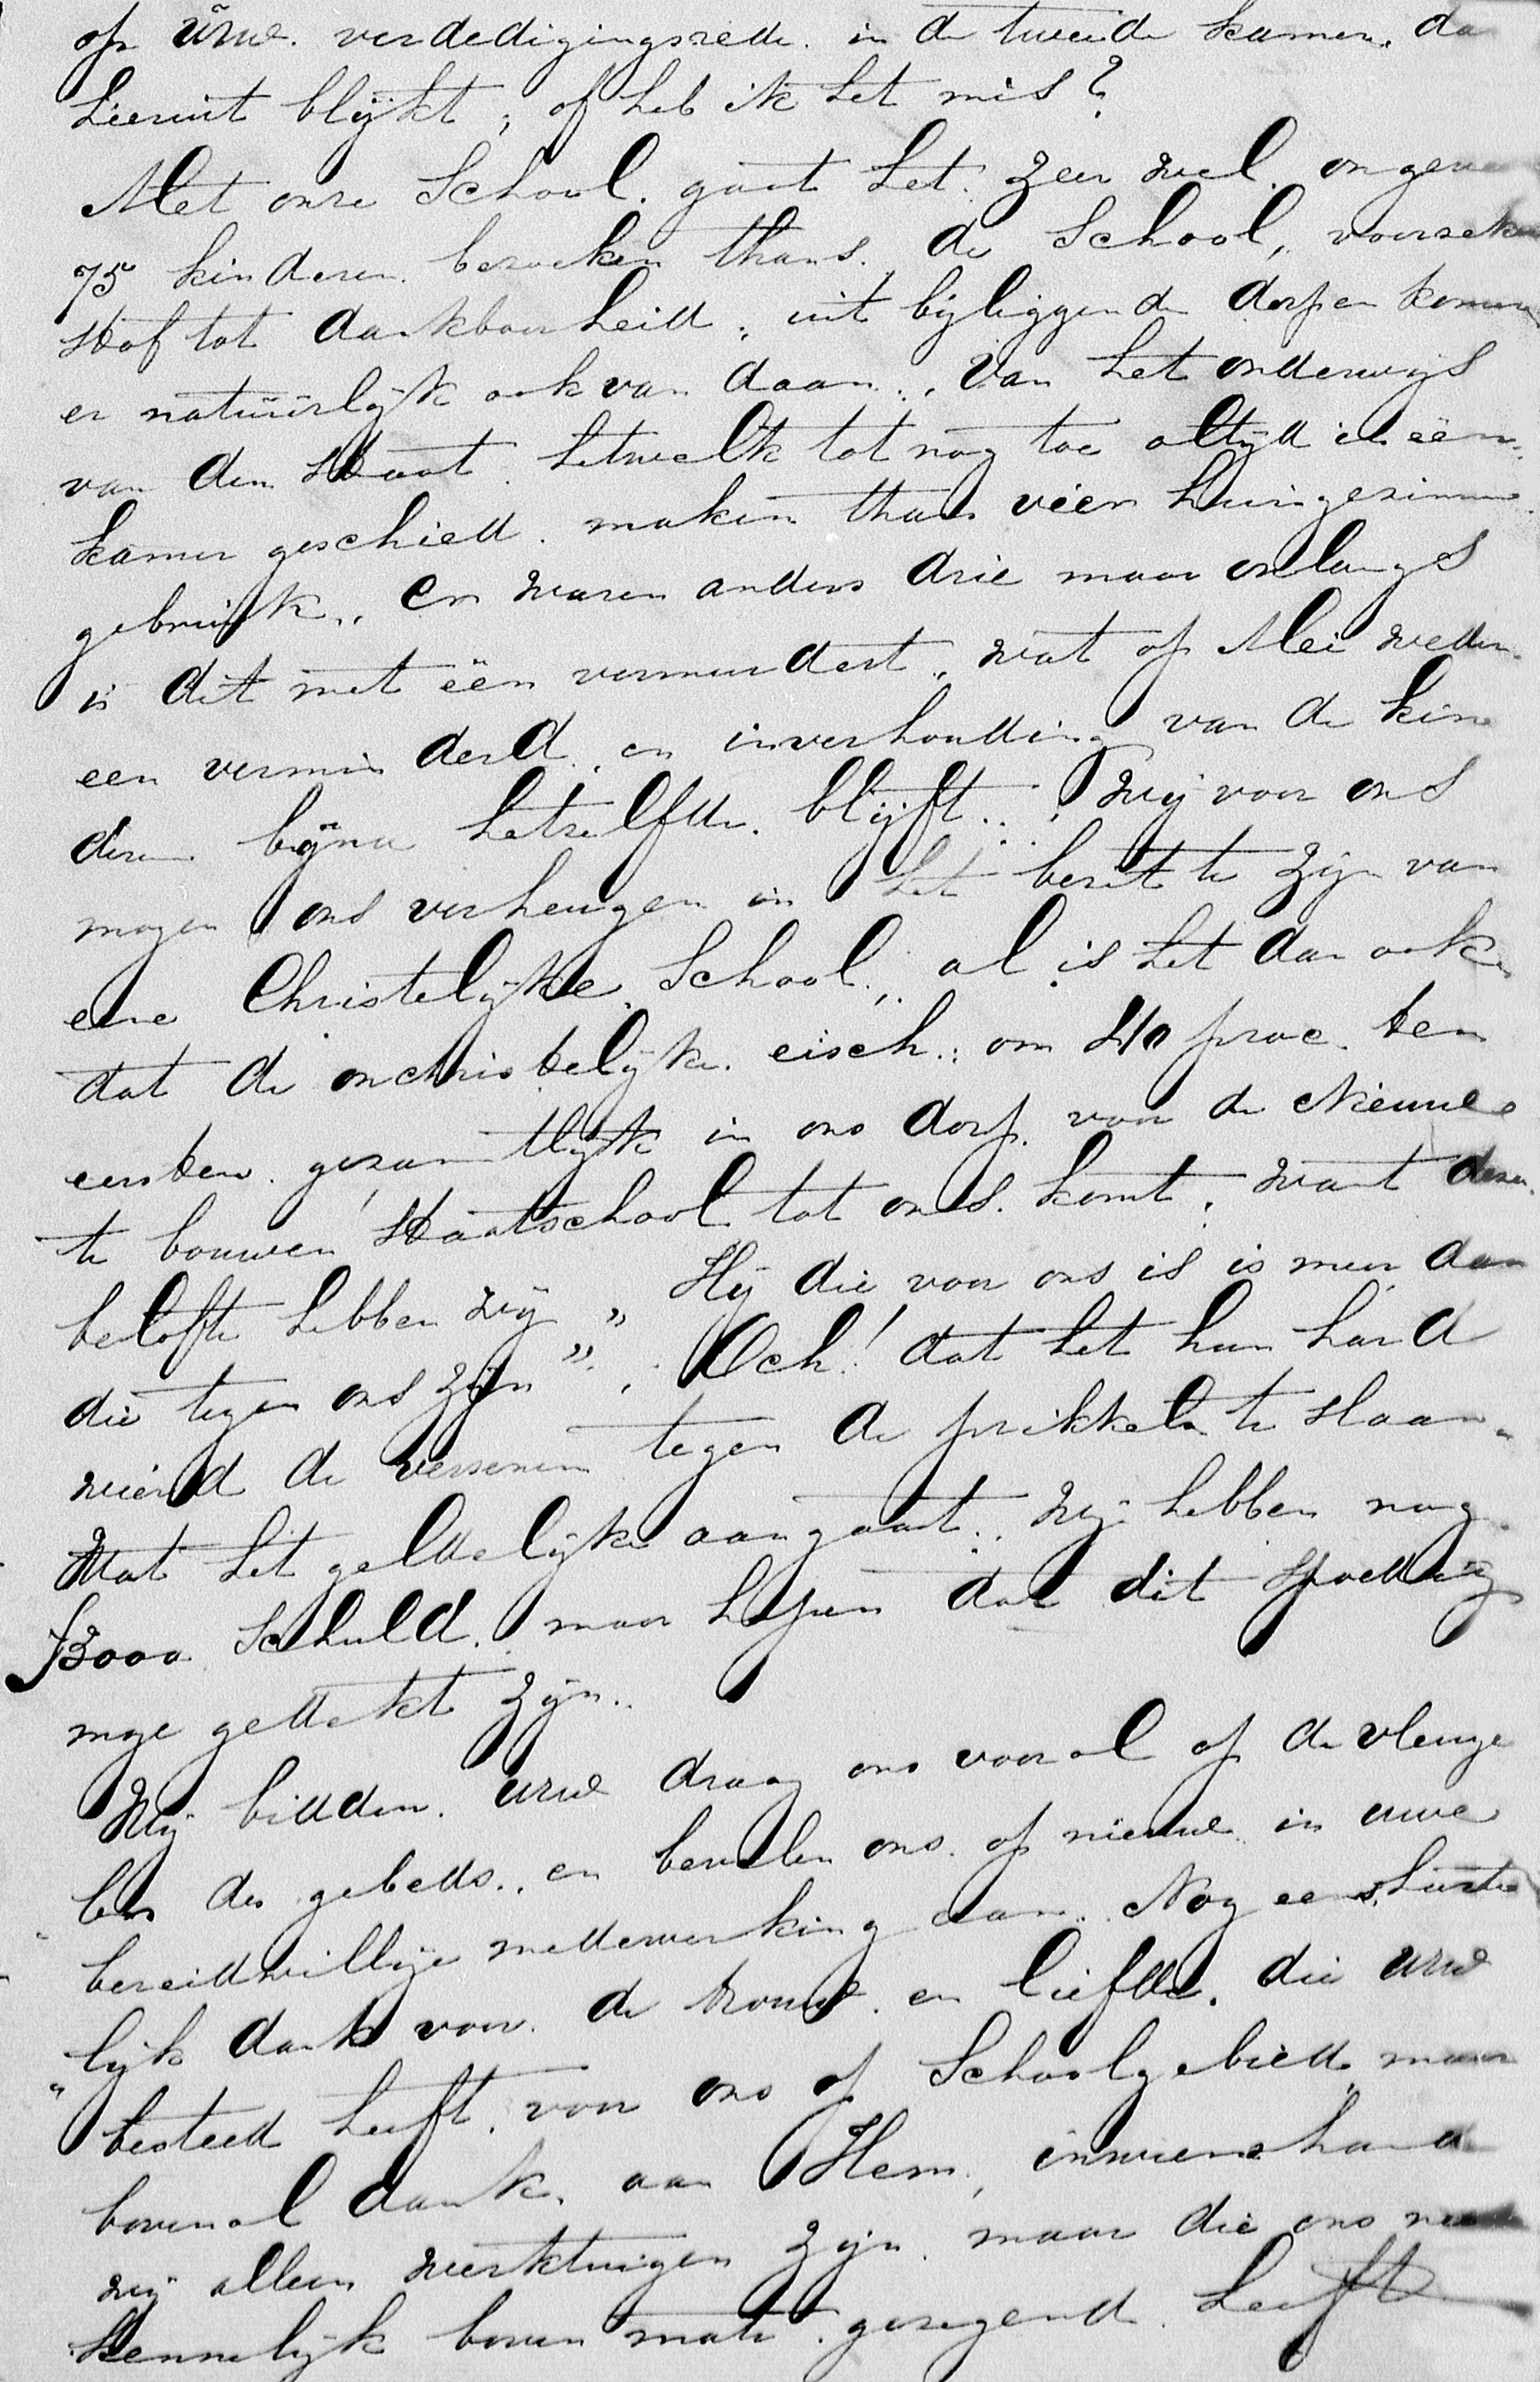 op Uwe. verdedigingsrede. in de tweede kamer. da
hieruit blijkt; of heb ik het mis?
Met onze School. gaat het. zeer wel. ongeve
75 kinderen. bezoeken thans. de School,, voorzeker
stof tot dankbaarheid. uit bijliggende dorpen komen
er natuurlijk ook van daan., Van het onderwijs
van den Staat. hetwelk tot nog toe altijd in eën
kamer geschied. maken thans vier huisgezinnen
gebruik,. er waren anders drie maar onlangs
is dit met eën vermeerdert. wat op Mei weder
een verminderd. en inverhouding van de kin
deren bijna hetzelfde. blijft... Wij voor ons
mogen ons verheugen in het bezit te zijn van
eene Christelijke School,. al is het dan ook
dat de onchristelijke. eisch: om 40 proc. ten
eersten. gezamentlijk in ons dorp. voor de Nieuwe
te bouwen Staatschool tot ons. komt. want deze
belofte hebben wij " Hij die voor ons is is meer dan
die tegen ons zijn ". Och! dat het hun hard
wierd de verssenen tegen de prikkels te slaan.
Wat het geldelijke aangaat.. Wij hebben nog
f3000 schuld. maar hopen dat dit spoedig
moge gedekt zijn..
Wij bidden. Uwe draag ons vooral op de vleuge
len des gebeds., en bevelen ons. op nieuwe in uwe
bereidwillige medewerking aan. Nog eens harte
lijk dank voor. de trouwe. en liefde. die Uwe
besteed heeft. voor ons op Schoolgebied. maar
bovenal dank. aan Hem, inwiens hand
wij alleen werktuigen zijn. maar die ons
kennelijk boven mate. gezegend. heeft